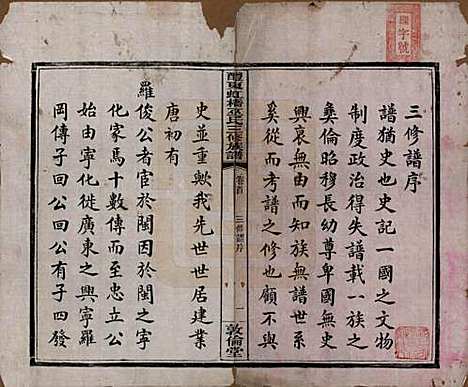 三修譜序
譜猶史也史記一國之文物
制度政治得失譜載一族之
彝倫昭穆長幼尊卑國無史
興衰無由而知族無譜世系
奚從而考譜之修也顧不與
三修譜序
一
敦倫堂
史並重歟我先世世居建業
唐初有
羅俊公者官於閩因於閩之寧
化家焉十數傳而至忠立公
始由寧化徙廣東之興寧羅
岡傳子四公四公有子四發